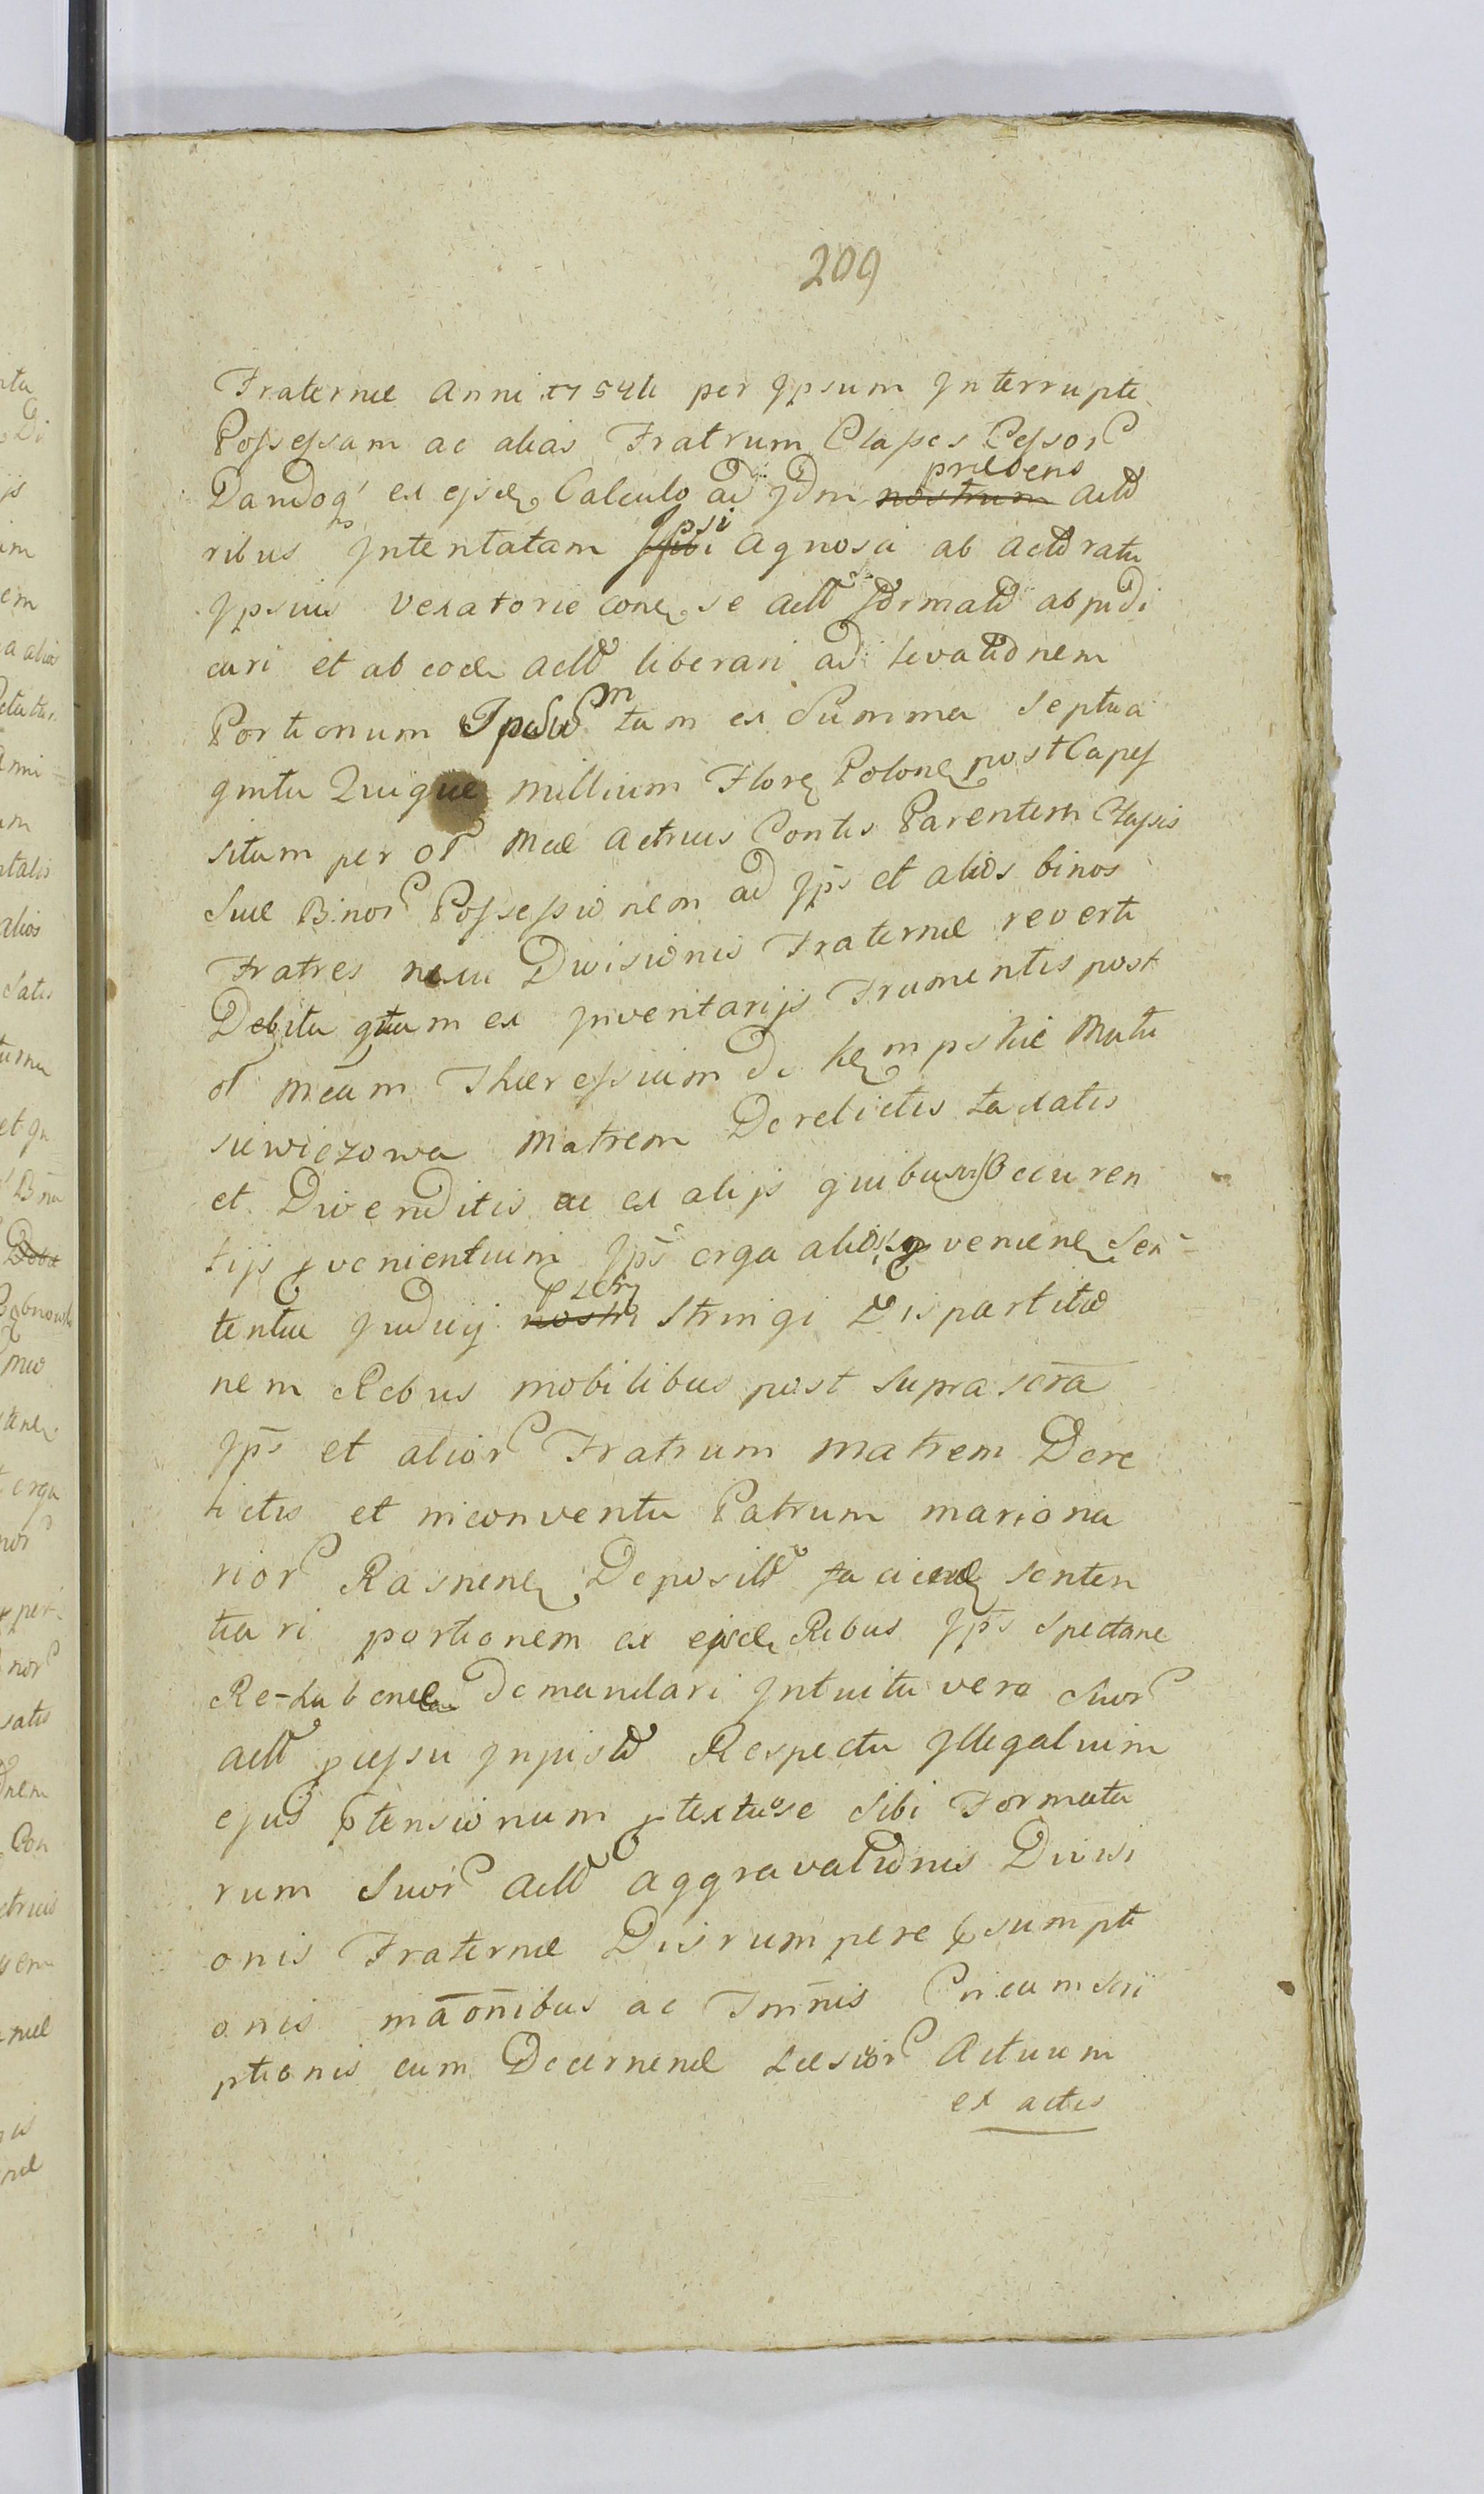 209
Fraternæ Anni 1754ti per Ipsum Interrupte
Possessam ac alias Fratrum Clapses Cessor
Dandoq' ex ejsde Calculo ad Jdm præsens nostrum acto
ribus Intentatam Ipsi sibi agnosci ab actoratu
Ipsius vexatorie conse se acto formato abjudi
cari et ab eode acto liberari ad levationem
Portionum tam ex Summa Septua
ginta Quique millium Flore Polone post Capes
situm per ol Mcæ Actricis Contis Parentem Clapsis
Suæ Binor Possessionem ad Jps et alios binos
Fratres nexu Divisionis Fraternæ reverti
Debita qtam ex Inventarijs Frumentis post
ol Mcam Theressiam de Kempskie Matu
siewiczowa Matrem Derelictis taxatis
et Divenditis ac ex alijs quibusvis Occuren
tijs pvenientium Jps erga alios pveniene Sen-
tentia Judicij nostri Stringi Dispartitio
nem Rebus mobilibus post suprascra
Jps et alior Fratrum Matrem Dere
lictis et in conventu Patrum Mariona
rior Rasnene Deposito faciene senten
tiari portionem ex ejsde Rebus Jps Spectane
Re-habene demandari Intuitu vero Suor
acto pcessu Injusto Respectu Illegalium
ejus ptensionum ptextuose Sibi Formata
rum Suor acto aggravationis Divisi
onis Fraternæ Disrumpere psumpti
onis mãonibus ac Imnis Circumscri
ptionis cum Decernene Læsior Actuum
ex actis